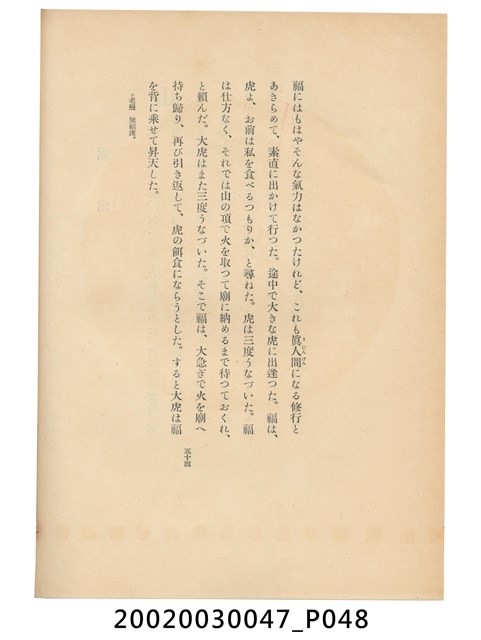 福にはもはやそんな氣力はなかつたけれど、これも眞人間になる修行と
あきらめて、素直に出かけて行つた。途中で大きな虎に出逢つた。福は、
虎よ、お前は私を食べるつもりか、と尋ねた。虎は三度うなづいた。福
は仕方なく、それでは山の頂で火を取つて廟に納めるまで待つておくれ、
と頼んだ。大虎はまた三度うなづいた。そこで福は、大急ぎで火を廟へ
持ち歸り、再び引き返して、虎の餌食にならうとした。すると大虎は福
を背に乘せて昇天した。
五十四
20020030047_P048